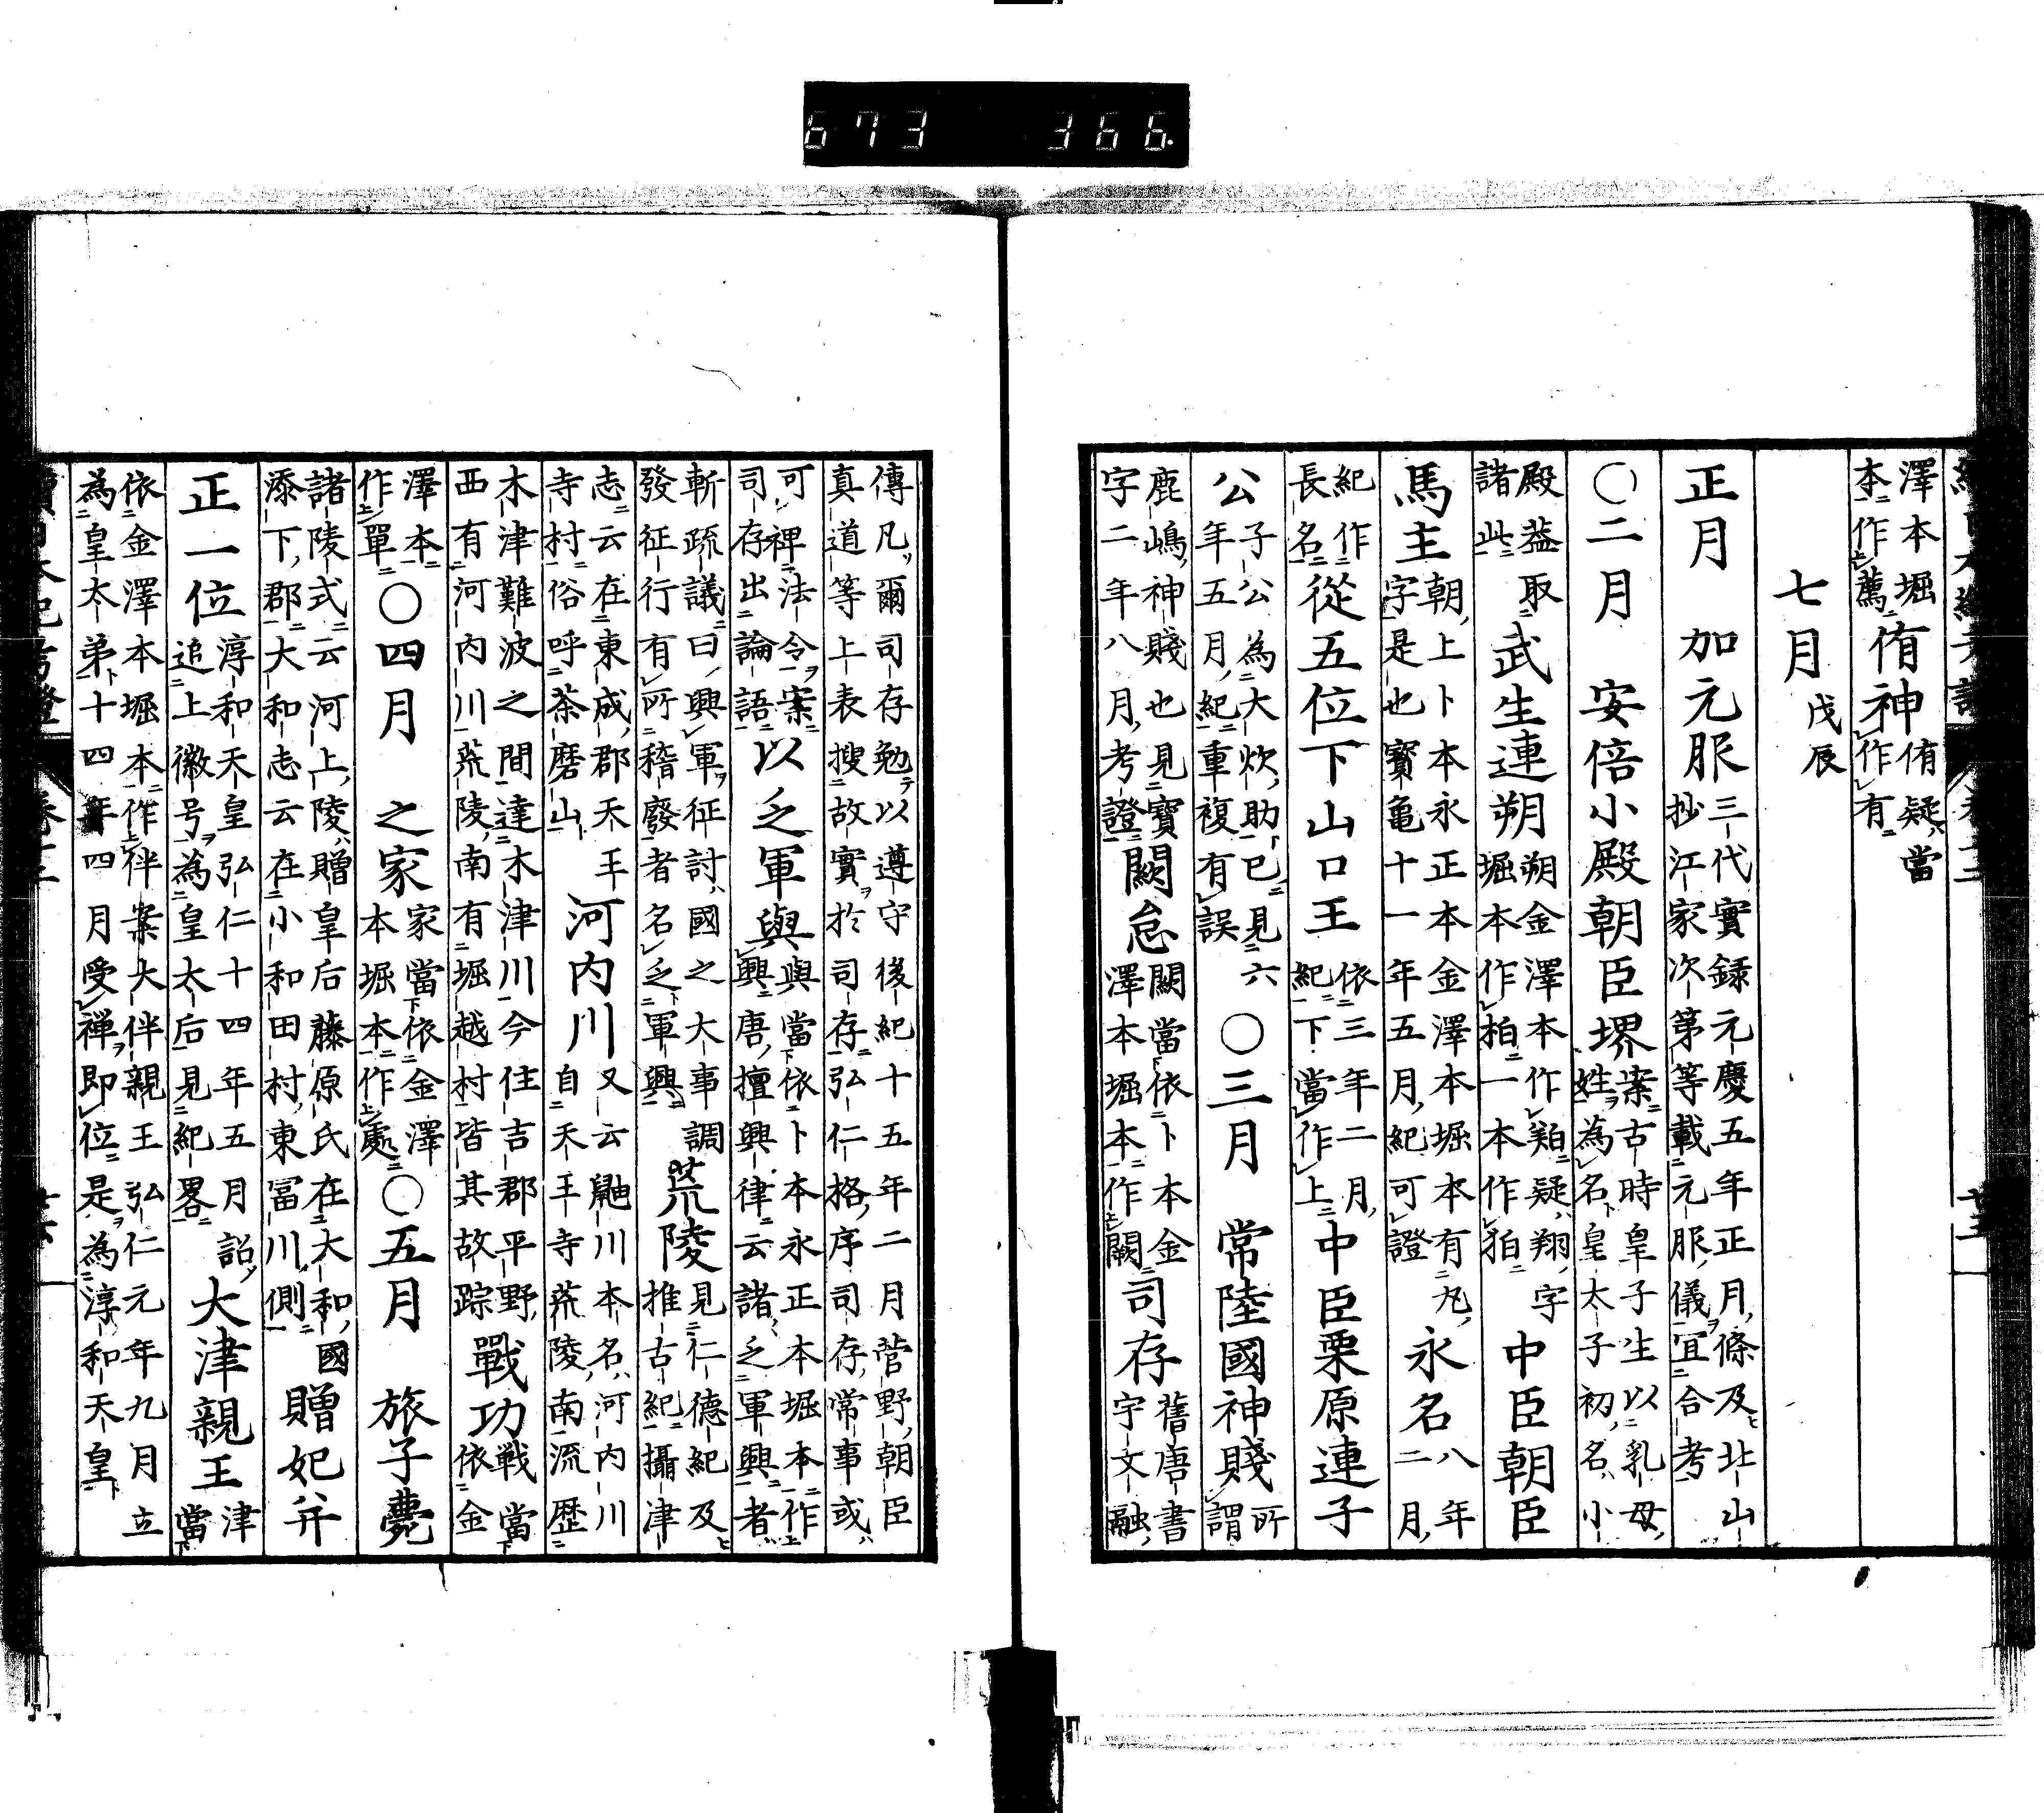 673 366.
澤本堀
本作薦
侑神
侑疑當
作有
七月
戊辰
正月 加元服
三代實録元慶五年正月條及北山
抄江家次第等載元服儀宜合考
〇二月 安倍小殿朝臣堺
案古時皇子生以乳母
姓為名皇太子初名小
殿蓋取
諸此
武生連朔
朔金澤本作𩿨疑翔字
堀本作𤝡一本作狛
中臣朝臣
馬主
朝上卜本永正本金澤本堀本有凡
字是也寳亀十一年五月紀可證
永名
八年
二月
紀作
長名
從五位下山口王
依三年二月
紀下當作上
中臣栗原連子
公
子公為大炊助已見六
年五月紀重複有誤
〇三月 常陸國神賤
所
謂
鹿嶋神賤也見寳
字二年八月考證
闕怠
闕當依卜本金
澤本堀本作闕
司存
舊唐書
宇文融
傳凡爾司存勉以遵守後紀十五年二月菅野朝臣
真道等上表搜故實於司存弘仁格序司存常事或
可裨法令案
司存出論語
以乏軍與
與當依卜本永正本堀本作
興唐擅興律云諸乏軍興者
斬疏議曰興軍征討國之大事調
發征行有所稽廢者名乏軍興
荒陵
見仁德紀及
推古紀攝津
志云在東成郡天王
寺村俗呼茶磨山
河内川
又云鼬川本名河内川
自天王寺荒陵南流歴
木津難波之間達木津川今住吉郡平野
西有河内川荒陵南有堀越村皆其故踪
戰功
戦當
依金
澤本
作單
〇四月 之家
家當依金澤
本堀本作處
〇五月 旅子薨
諸陵式云河上陵贈皇后藤原氏在大和國
添下郡大和志云在小和田村東冨川側
贈妃并
正一位
淳和天皇弘仁十四年五月詔
追上徽号為皇太后見紀畧
大津親王
津
當
依金澤本堀本作伴案大伴親王弘仁元年九月立
為皇太弟十四年四月受禅即位是為淳和天皇